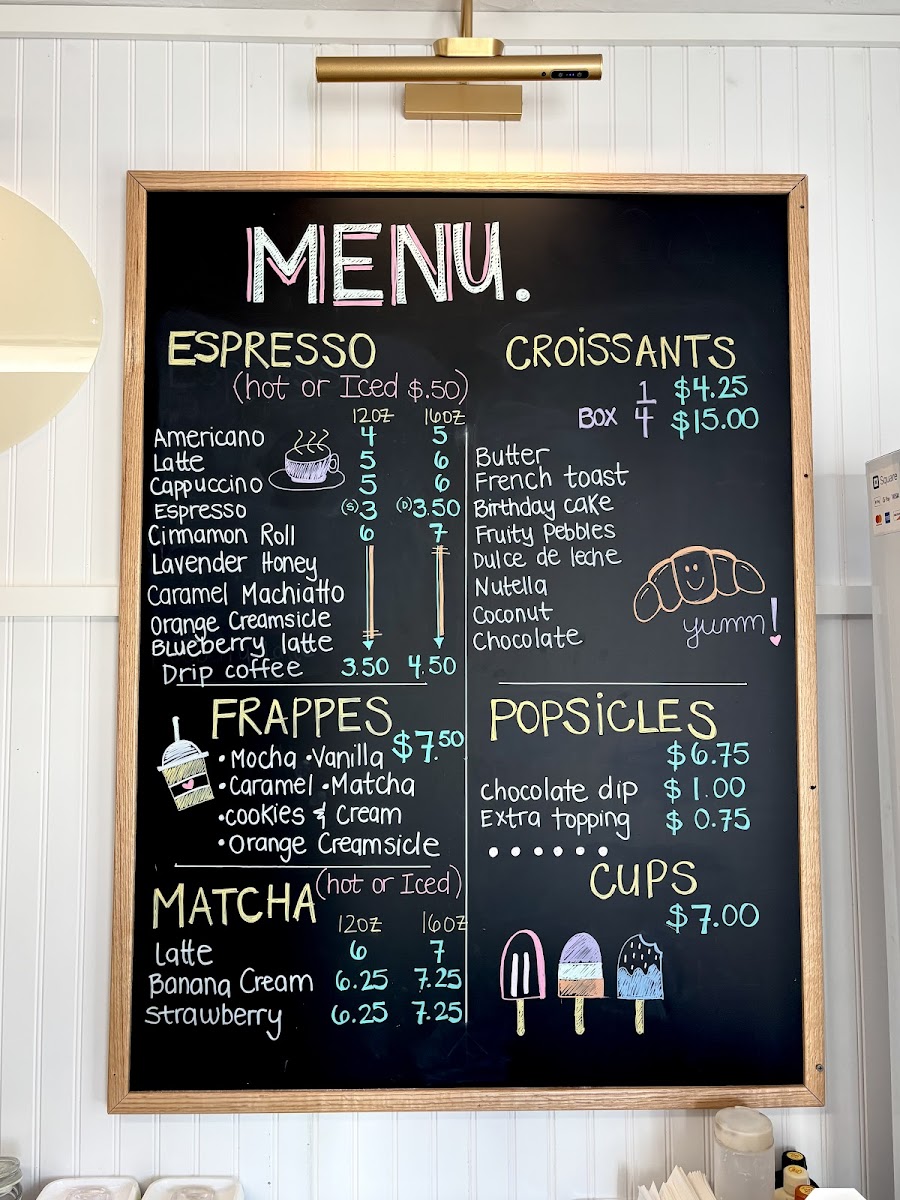 MENU.
ESPRESSO
(hot or Iced $.50)
12OZ 16OZ
Americano 4 5
Latte 5 6
Cappuccino 5 6
Espresso (S) 3 (D) 3.50
Cinnamon Roll 6 7
Lavender Honey
Caramel Machiatto
Orange Creamsicle
Blueberry latte
Drip coffee 3.50 4.50
FRAPPES
$7.50
• Mocha • Vanilla
• Caramel • Matcha
• cookies & Cream
• Orange Creamsicle
MATCHA (hot or Iced)
12OZ 16OZ
Latte 6 7
Banana Cream 6.25 7.25
Strawberry 6.25 7.25
CROiSSANTS
1 $4.25
BOX 4 $15.00
Butter
French toast
Birthday cake
Fruity Pebbles
Dulce de leche
Nutella
Coconut
Chocolate
yumm!
POPSiCLES
$6.75
chocolate dip $1.00
Extra topping $0.75
CUPS
$7.00
Square